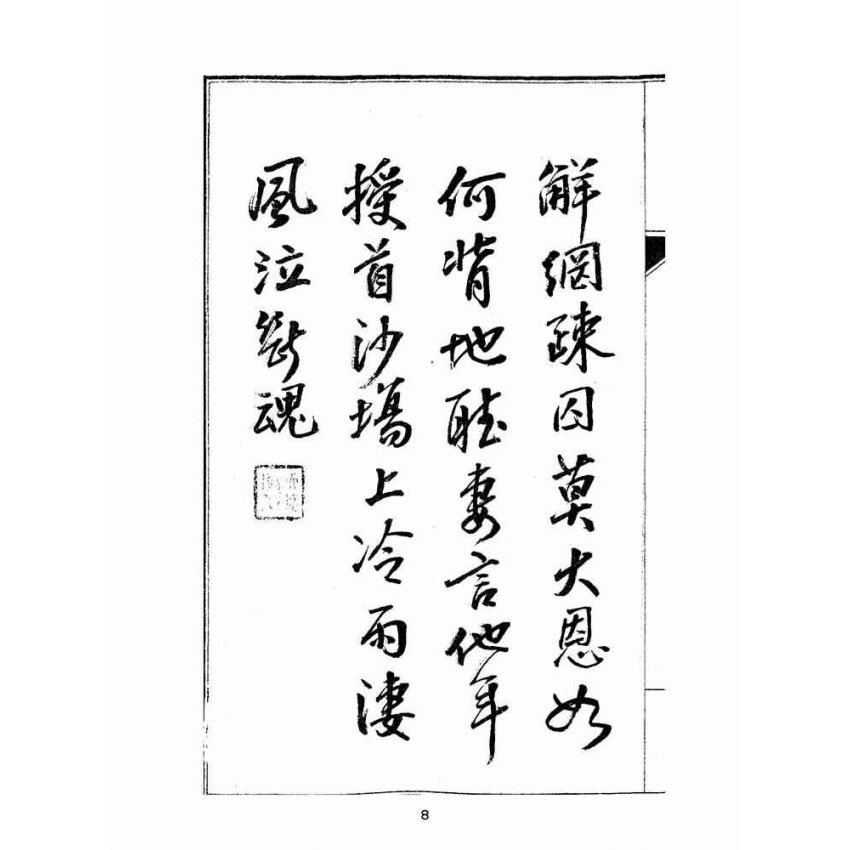 解網疎囚莫大恩如
何背地聽妻言他年
授首沙場上冷雨淒
風泣斷魂
8